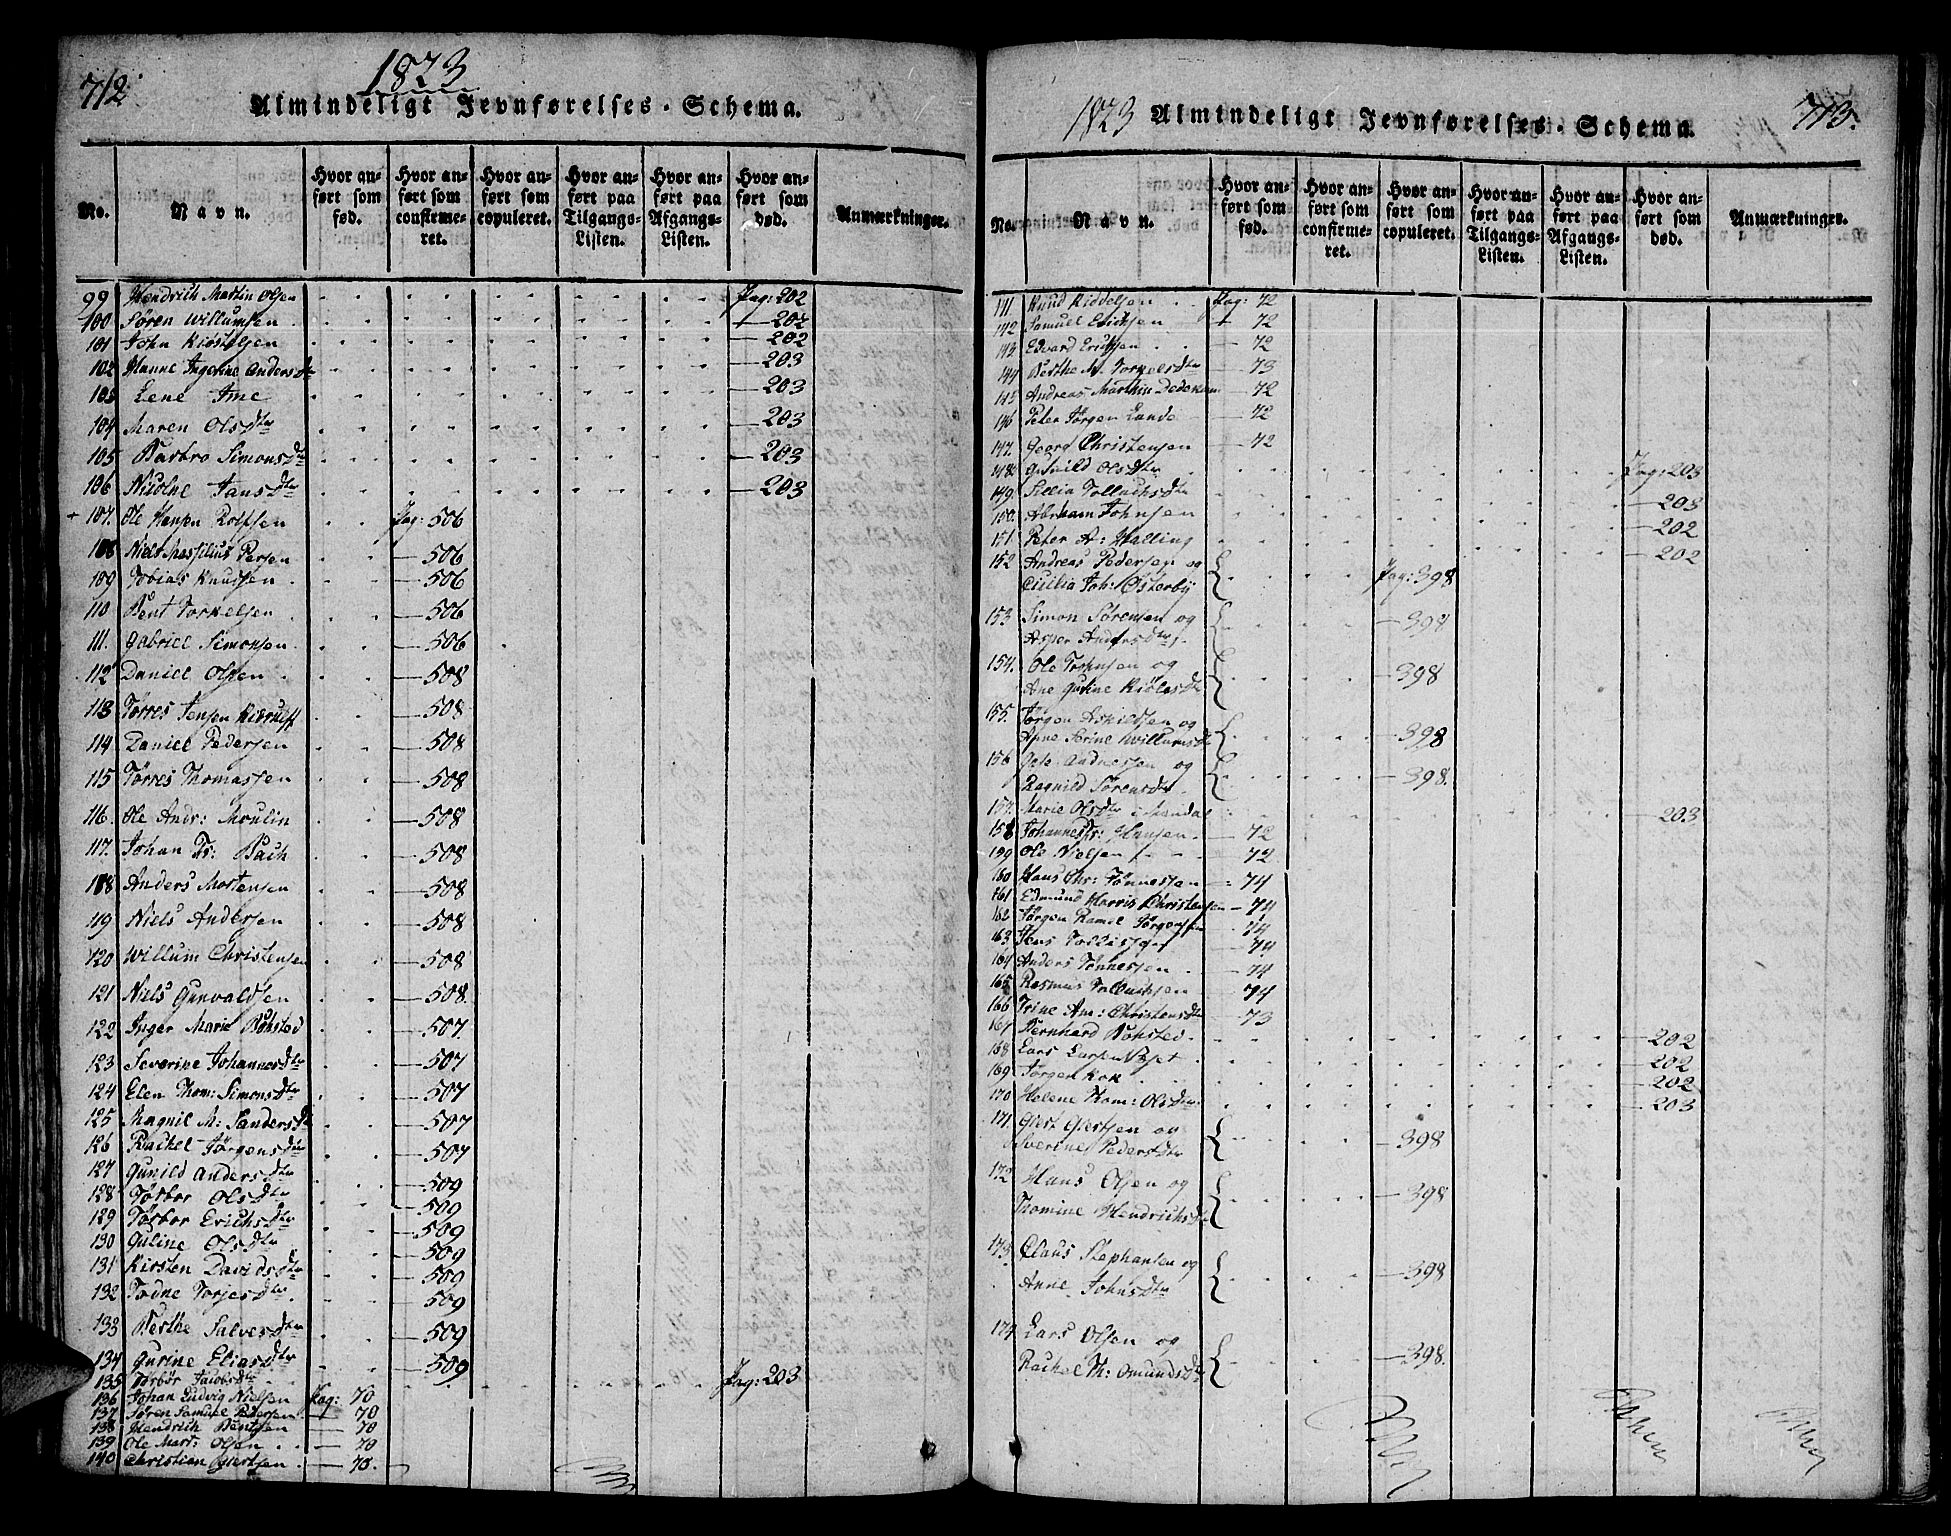 712.
1823
Almindeligt Jevnførelses-Schema.
No.
Navn.
Hvor anført som fød.
Hvor anført som confirmeret.
Hvor anført som copuleret.
Hvor anført paa Tilgangs-Listen.
Hvor anført paa Afgangs-Listen.
Hvor anført som død.
Anmærkninger.
99 Hendrich Martin Olsen Pag: 202
100 Søren Willumsen — 202
101 John Kirstelsen — 202
102 Hanne Ingerine Andersdtr — 203
103 Lene Ime — 203
104 Maren Olsdtr — 203
105 Barbro Simonsdtr — 203
106 Nicoline Jansdtr — 203
+ 107. Ole Hansen Rolfsen Pag: 506
108 Niels Massilius Persen — 506
109 Tobias Knudsen — 506
110 Bent Torkelsen — 506
111. Gabriel Simonsen — 506
112 Daniel Olsen — 508
113 Tørres Jensen — 508
114 Daniel Pedersen — 508
115 Tørres Thomassen — 508
116. Ole Andr: Moulin — 508
117. Johan Fr: Bach — 508
118 Anders Mortensen — 508
119 Niels Andersen — 508
120 Willum Christensen — 508
121 Niels Gunvaldsen — 508
122 Inger Marie Bohsted — 507
123 Severine Johannesdtr — 507
124 Elen Thom: Simonsdtr — 507
125 Magnil M: Sandersdtr — 507
126 Rachel Jørgensdtr — 507
127 Gunild Andersdtr — 509
128 Torbor Olsdtr — 509
129 Torbor Erichsdtr — 509
130 Guline Olsdtr — 509
131 Kirsten Davidsdtr — 509
132 Todne Torjesdtr — 509
133 Berthe Salvesdtr — 509
134 Gurine Eliasdtr — 509
135 Torbør Jacobsdtr Pag: 203
136 Johan Ludvig Nielsen Pag: 70
137 Søren Samuel Pedersen — 70
138 Hendrich Bentsen — 70
139 Ole Mart: Olsen — 70
140 Christian Giertsen — 70.
1823 Almindeligt Jevnførelses-Schema.
713.
No.
Navn.
Hvor anført som fød.
Hvor anført som confirmeret.
Hvor anført som copuleret.
Hvor anført paa Tilgangs-Listen.
Hvor anført paa Afgangs-Listen.
Hvor anført som død.
Anmærkninger.
141. Knud Kiddelsen Pag: 72
142 Samuel Erichsen — 72
143 Edvard Erichsen — 72
144 Berthe M. Torkelsdtr — 73
145 Andreas Marthin Dedekam — 72
146 Peter Jørgen Lunde — 72
147. Georg Christensen — 72
148 Gunild Olsdtr Pag: 203
149. Sillia Tollachsdtr — 203
150. Abraham Johnsen — 202
151. Peter A: Halling — 202
152 Andreas Pedersen og
Cicilia Joh: Østerby Pag: 398
153 Simon Sørensen og
Asper Andersdtr — 398
154. Ole Johnsen og
Ane Gurine — 398
155. Jørgen Askildsen og
Anne Serine Willumsdtr — 398
156 og
Ragnild Sørensdtr — 398.
157. Marie Olsdtr i Mandal — 203
158 Johannes Hansen — 72
159 Ole Nielsen — 72
160 Hans Chr: Tønnessen — 74
161 Edmund Harris Christensen — 74
162 Jørgen Ramel Jørgensen — 74
163 Jens — 74
164 Anders Tønnessen — 74
165 Rasmus Tollachsen — 74
166 Trine Am: Christensdtr — 73
167 Bernhard Bohsted — 202
168 Lars Larsen — 202
169 Jørgen Kok — 202
170 Helene Thom: Olsdtr — 203
171. Giert Giertsen og
Severine Pedersdtr — 398
172 Hans Olsen og
Thomine Hendrichsdtr — 398
173 Claus Stephansen og
Anne Johnsdtr — 398
174 Lars Olsen og
Rachel Th: Omundsdtr — 398.